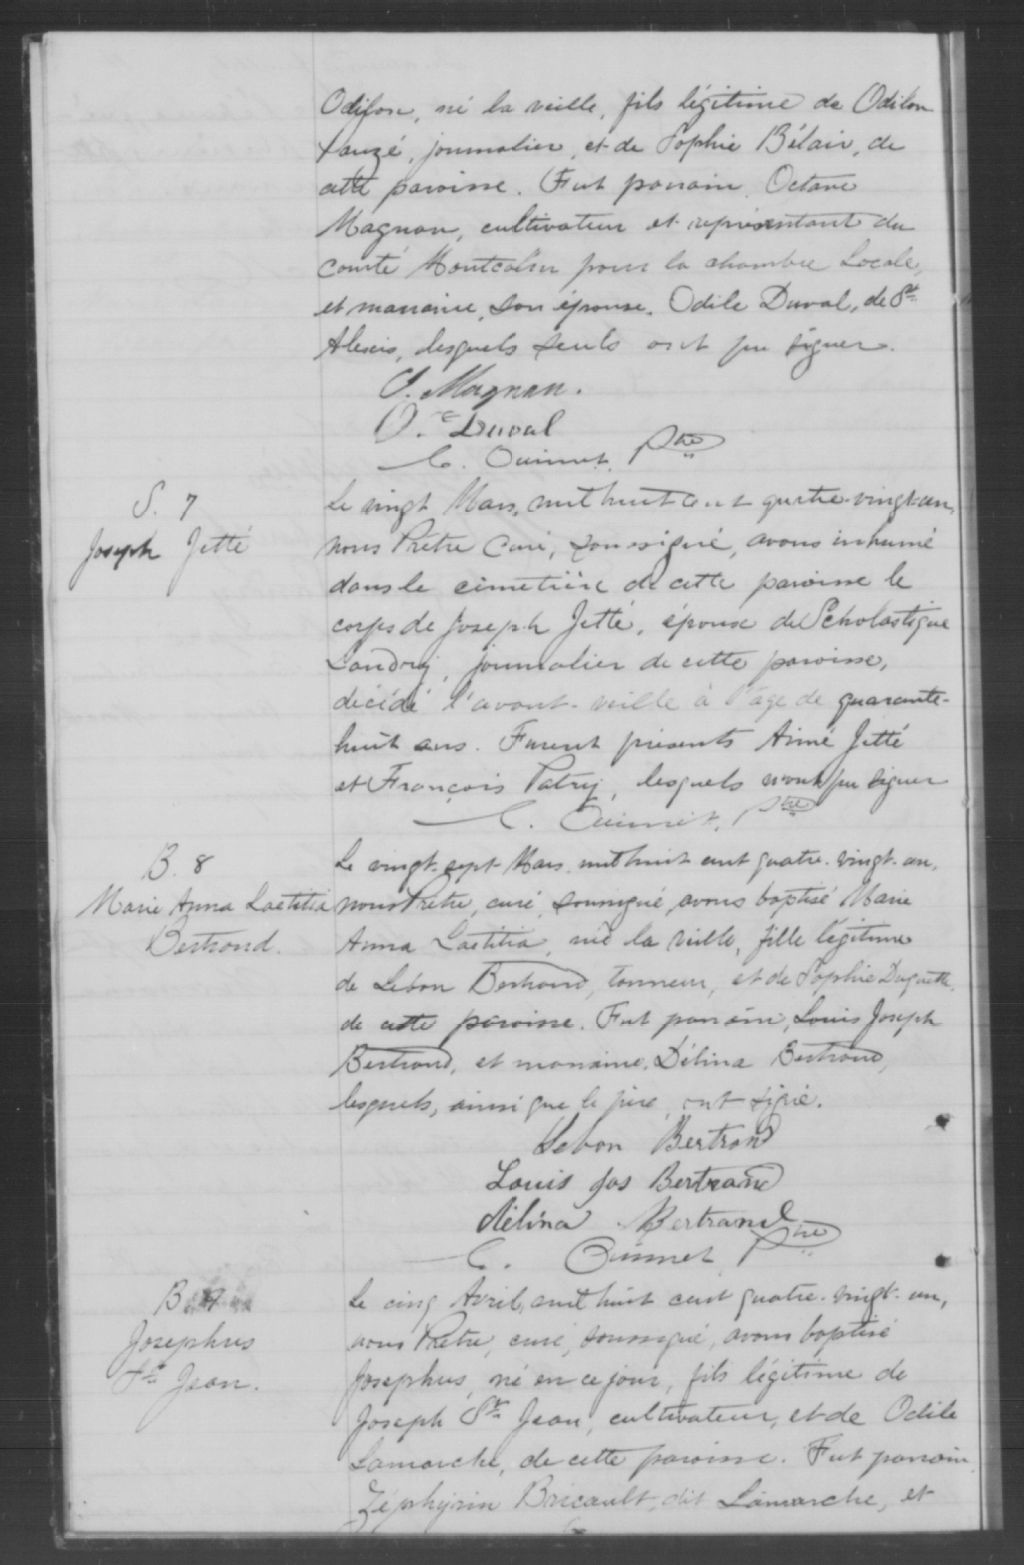 Odilon, né la veille, fils légitime de Odilon
Lauzé, journalier, et de Sophie Bélair, de
cette paroisse. Fut parrain, Octave
Magnan, cultivateur et représentant du
comté Montcalm pour la chambre Locale,
et marraine, son épouse, Odile Duval, de St.
Alexis, lesquels seuls ont pu signer.
O. Magnan.
O. Duval
C. Ouimet, Ptre
S. 7
Joseph Jetté
Le vingt Mars, mil huit cent quatre-vingt-un,
nous Prêtre Curé, soussigné, avons inhumé
dans le cimetière de cette paroisse le
corps de Joseph Jetté, époux de Scholastique
Landry, journalier de cette paroisse,
décédé l'avant-veille à l'age de quarante-
huit ans. Furent présents Aimé Jetté
et François Patry, lesquels n'ont pu signer
C. Ouimet, Ptre
B. 8
Marie Anna Laetitia
Bertrand.
Le vingt-sept Mars, mil huit cent quatre-vingt-un,
nous Prêtre, curé, soussigné, avons baptisé Marie
Anna Laetitia, née la veille, fille légitime
de Lebon Bertrand, tonneur, et de Sophie Duquette,
de cette paroisse. Fut parrain, Louis Joseph
Bertrand, et marraine, Délina Bertrand,
lesquels, ainsi que le père, ont signé.
Lebon Bertrand
Louis Jos Bertrand
Délina Bertrand
C. Ouimet, Ptre
B. 9
Josephus
St. Jean.
Le cinq Avril, mil huit cent quatre-vingt-un,
nous Prêtre, curé, soussigné, avons baptisé
Josephus, né en ce jour, fils légitime de
Joseph St. Jean, cultivateur, et de Odile
Lamarche, de cette paroisse. Fut parrain
Zéphyrin Bricault, dit Lamarche, et